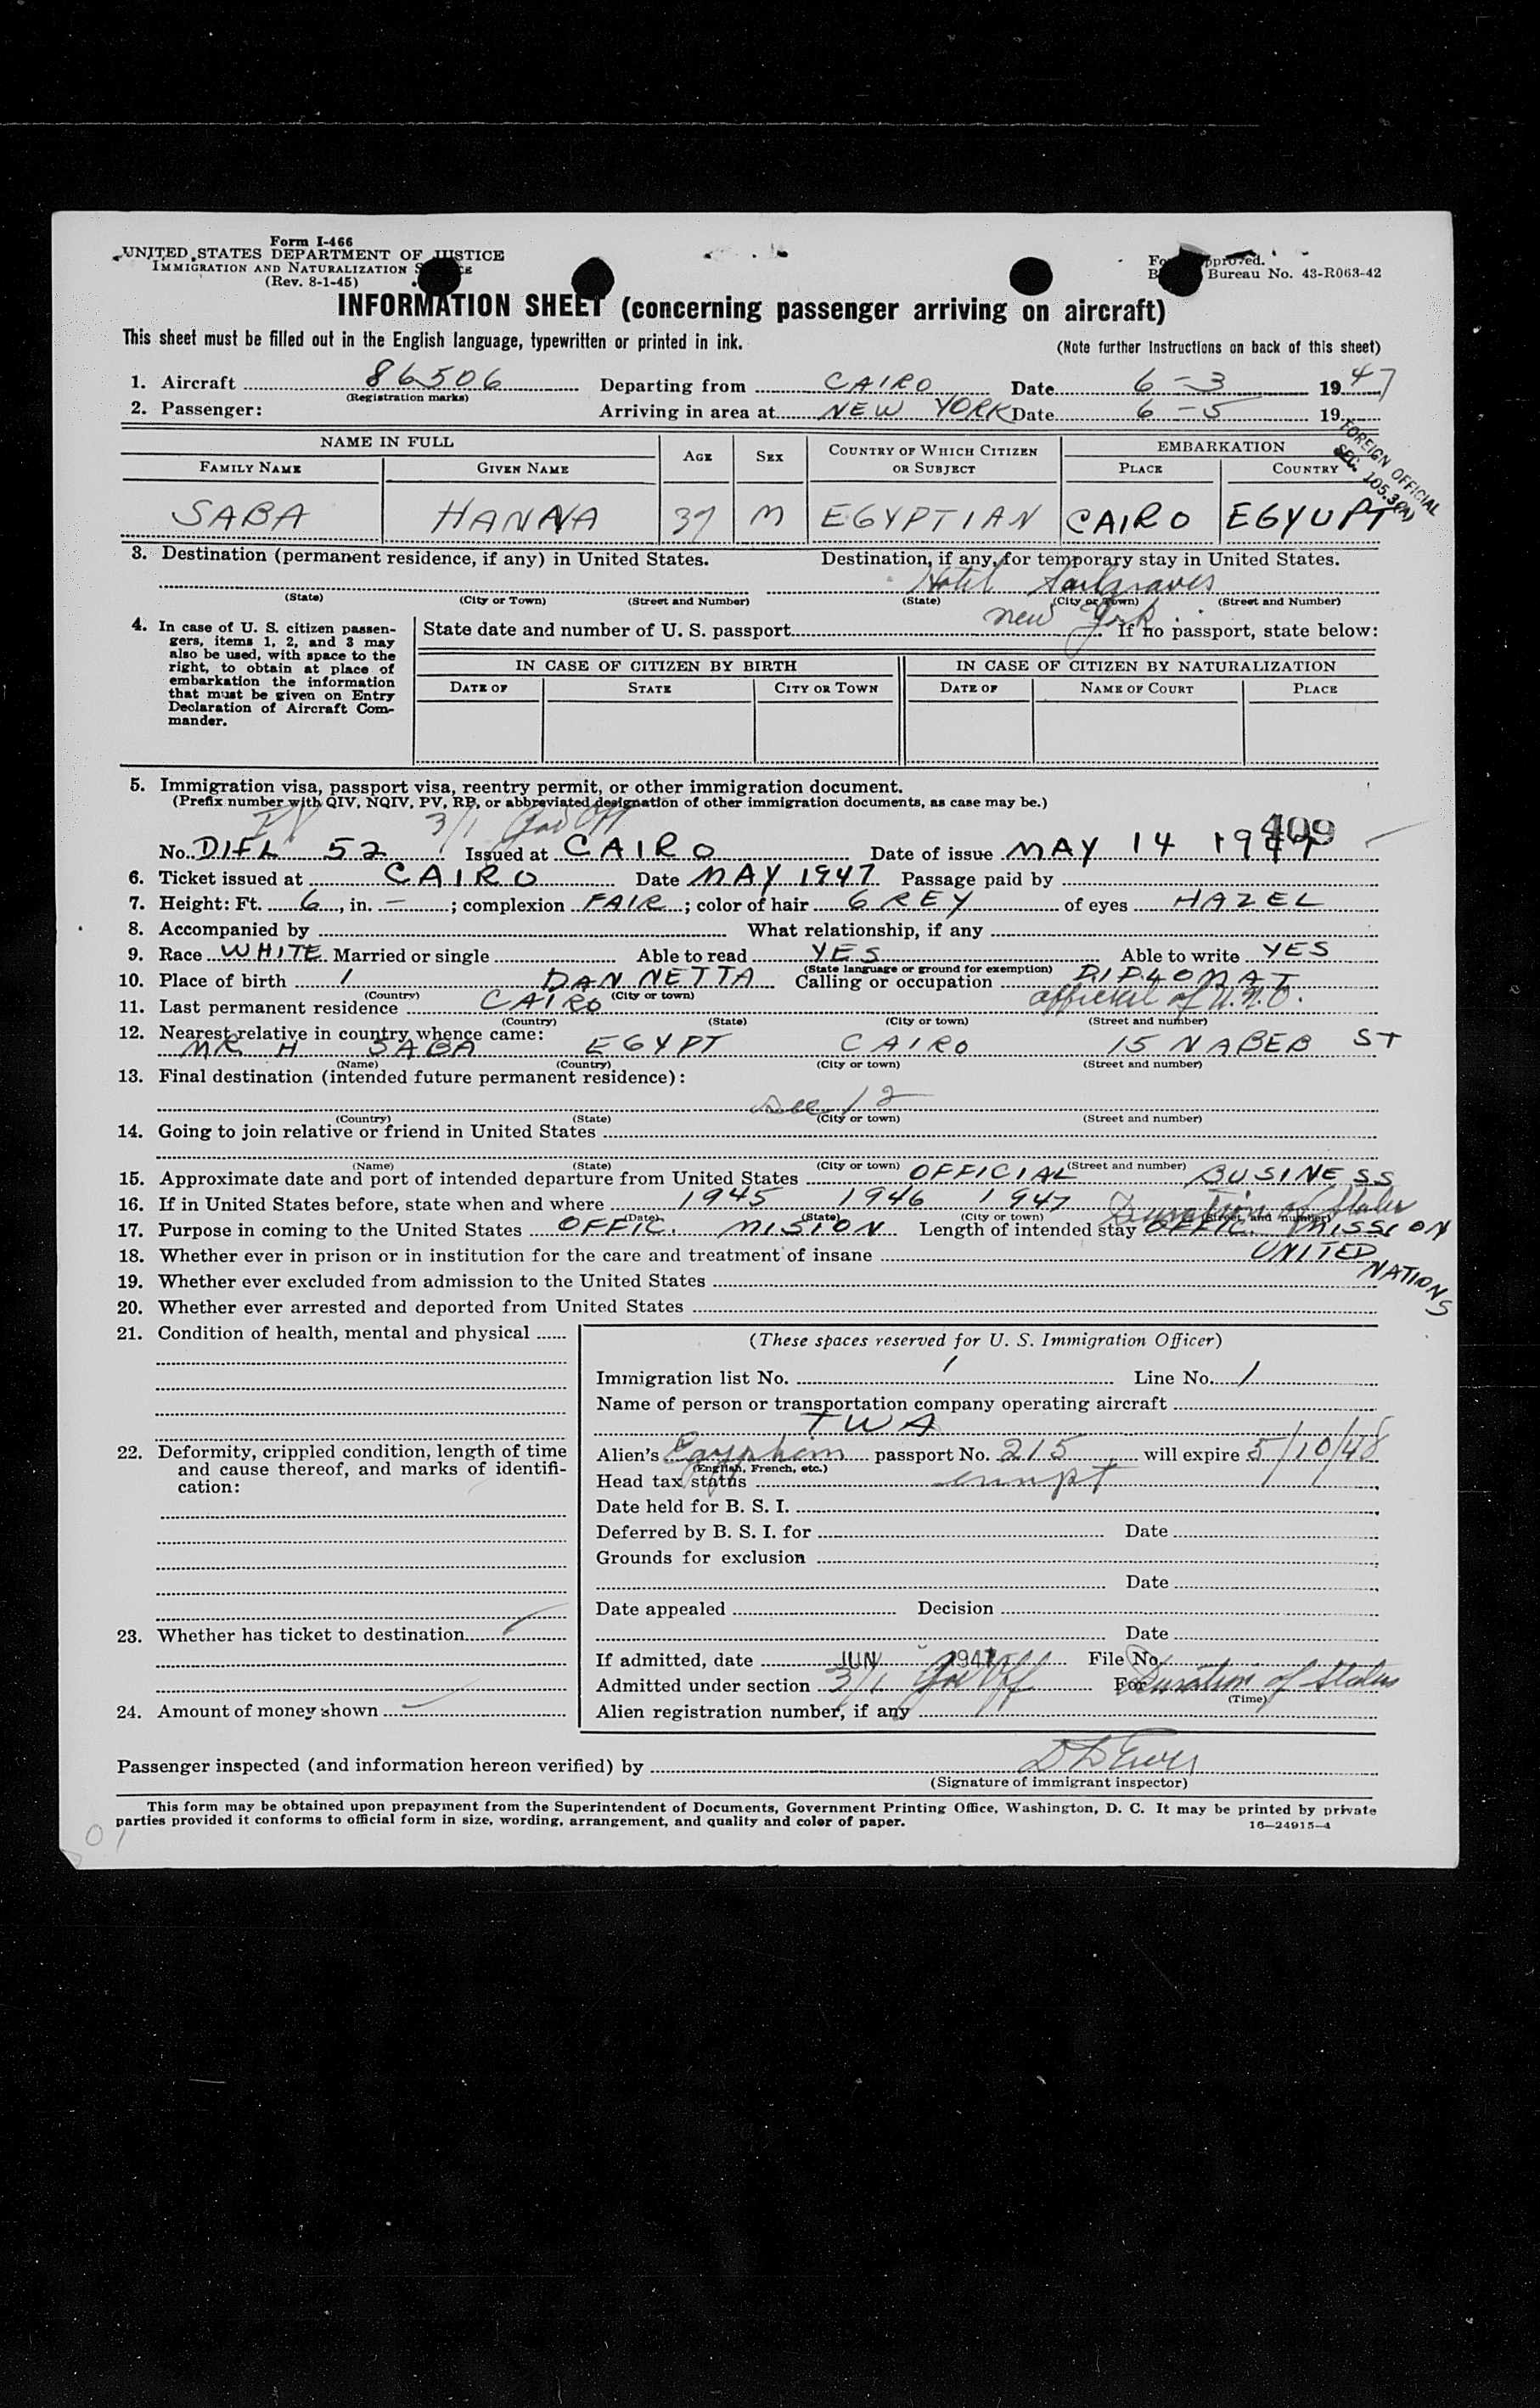 Form I-466
UNITED STATES DEPARTMENT OF JUSTICE
IMMIGRATION AND NATURALIZATION
(Rev. 8-1-45)
Bureau No. 43-R063-42
INFORMATION SHEET (concerning passenger arriving on aircraft)
This sheet must be filled out in the English language, typewritten or printed in ink.
(Note further instructions on back of this sheet)
1. Aircraft 86506 Departing from CAIRO Date 6-3 1947
(Registration marks)
2. Passenger: Arriving in area at NEW YORK Date 6-5 19
FOREIGN OFFICIAL
SEC. 105.3(A)
NAME IN FULL AGE SEX COUNTRY OF WHICH CITIZEN OR SUBJECT EMBARKATION
FAMILY NAME GIVEN NAME PLACE COUNTRY
SABA HANNA 37 M EGYPTIAN CAIRO EGYUPT
3. Destination (permanent residence, if any) in United States. Destination, if any, for temporary stay in United States.
Hotel
(State) (City or Town) (Street and Number) (State) (City or Town) (Street and Number)
New York
4. In case of U. S. citizen passengers, items 1, 2, and 3 may also be used, with space to the right, to obtain at place of embarkation the information that must be given on Entry Declaration of Aircraft Commander.
State date and number of U. S. passport If no passport, state below:
IN CASE OF CITIZEN BY BIRTH IN CASE OF CITIZEN BY NATURALIZATION
DATE OF STATE CITY OR TOWN DATE OF NAME OF COURT PLACE
5. Immigration visa, passport visa, reentry permit, or other immigration document.
(Prefix number with QIV, NQIV, PV, RP, or abbreviated designation of other immigration documents, as case may be.)
PV 3/1 Gov Off 409
No. DIFL 52 Issued at CAIRO Date of issue MAY 14 1947
6. Ticket issued at CAIRO Date MAY 1947 Passage paid by
7. Height: Ft. 6, in. —; complexion FAIR; color of hair GREY of eyes HAZEL
8. Accompanied by What relationship, if any
9. Race WHITE Married or single Able to read YES Able to write YES
(State language or ground for exemption)
10. Place of birth 1 DAN NETTA Calling or occupation DIPLOMAT
(Country) (City or town) official of U.N.O.
11. Last permanent residence CAIRO
(Country) (State) (City or town) (Street and number)
12. Nearest relative in country whence came:
MR H SABA EGYPT CAIRO 15 NABEB ST
(Name) (Country) (City or town) (Street and number)
13. Final destination (intended future permanent residence):
see 12
(Country) (State) (City or town) (Street and number)
14. Going to join relative or friend in United States
(Name) (State) (City or town) (Street and number)
15. Approximate date and port of intended departure from United States OFFICIAL BUSINESS
16. If in United States before, state when and where 1945 1946 1947 Duration of Status
(Date) (State) (City or town) (Street and number)
17. Purpose in coming to the United States OFFIC. MISION Length of intended stay OFFIC. MISSION
UNITED NATIONS
18. Whether ever in prison or in institution for the care and treatment of insane
19. Whether ever excluded from admission to the United States
20. Whether ever arrested and deported from United States
21. Condition of health, mental and physical
22. Deformity, crippled condition, length of time and cause thereof, and marks of identification:
23. Whether has ticket to destination
24. Amount of money shown
(These spaces reserved for U. S. Immigration Officer)
Immigration list No. 1 Line No. 1
Name of person or transportation company operating aircraft
TWA
Alien's Egyptian passport No. 215 will expire 5/10/48
(English, French, etc.)
Head tax status exempt
Date held for B. S. I.
Deferred by B. S. I. for Date
Grounds for exclusion
Date
Date appealed Decision
Date
If admitted, date JUN 1947 File No.
Admitted under section 3/1 Gov Off For Duration of Status
(Time)
Alien registration number, if any
Passenger inspected (and information hereon verified) by
(Signature of immigrant inspector)
This form may be obtained upon prepayment from the Superintendent of Documents, Government Printing Office, Washington, D. C. It may be printed by private
parties provided it conforms to official form in size, wording, arrangement, and quality and color of paper.
16—24915-4